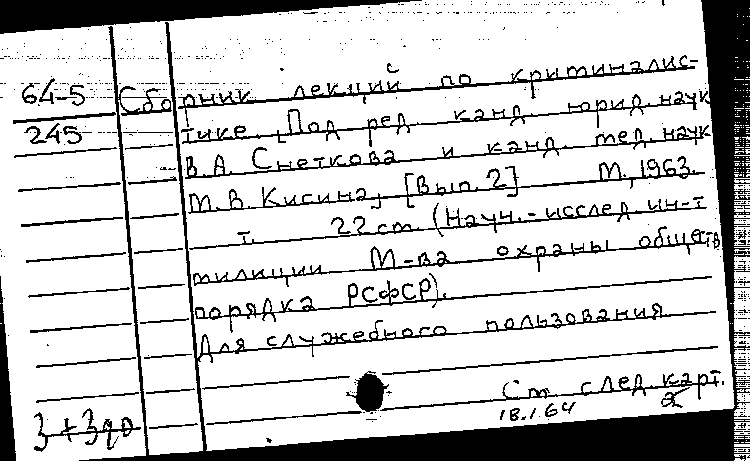 64-5
245
Сборник лекций по криминалис-
тике. [Под ред. канд. юрид. наук
В. А. Снеткова и канд. мед. наук
М. В. Кисина, [Вып. 2] М., 1963.
т. 22 см. (Науч.-исслед. ин-т
милиции М-ва охраны обществ
порядка РСФСР).
Для служебного пользования
См. след. карт.
18.1.64 2